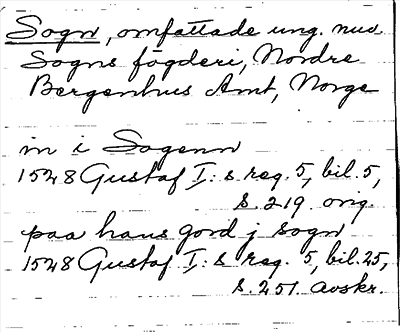 Sogn, omfattade ung. nuv.
Sogns fögderi, Nordre
Bergenhus Amt, Norge
in i Sogenn
1528 Gustaf I:s reg. 5, bil. 5,
s. 219. orig.
paa hans gord j Sogn
1528 Gustaf I:s reg. 5, bil. 25,
s. 251. avskr.